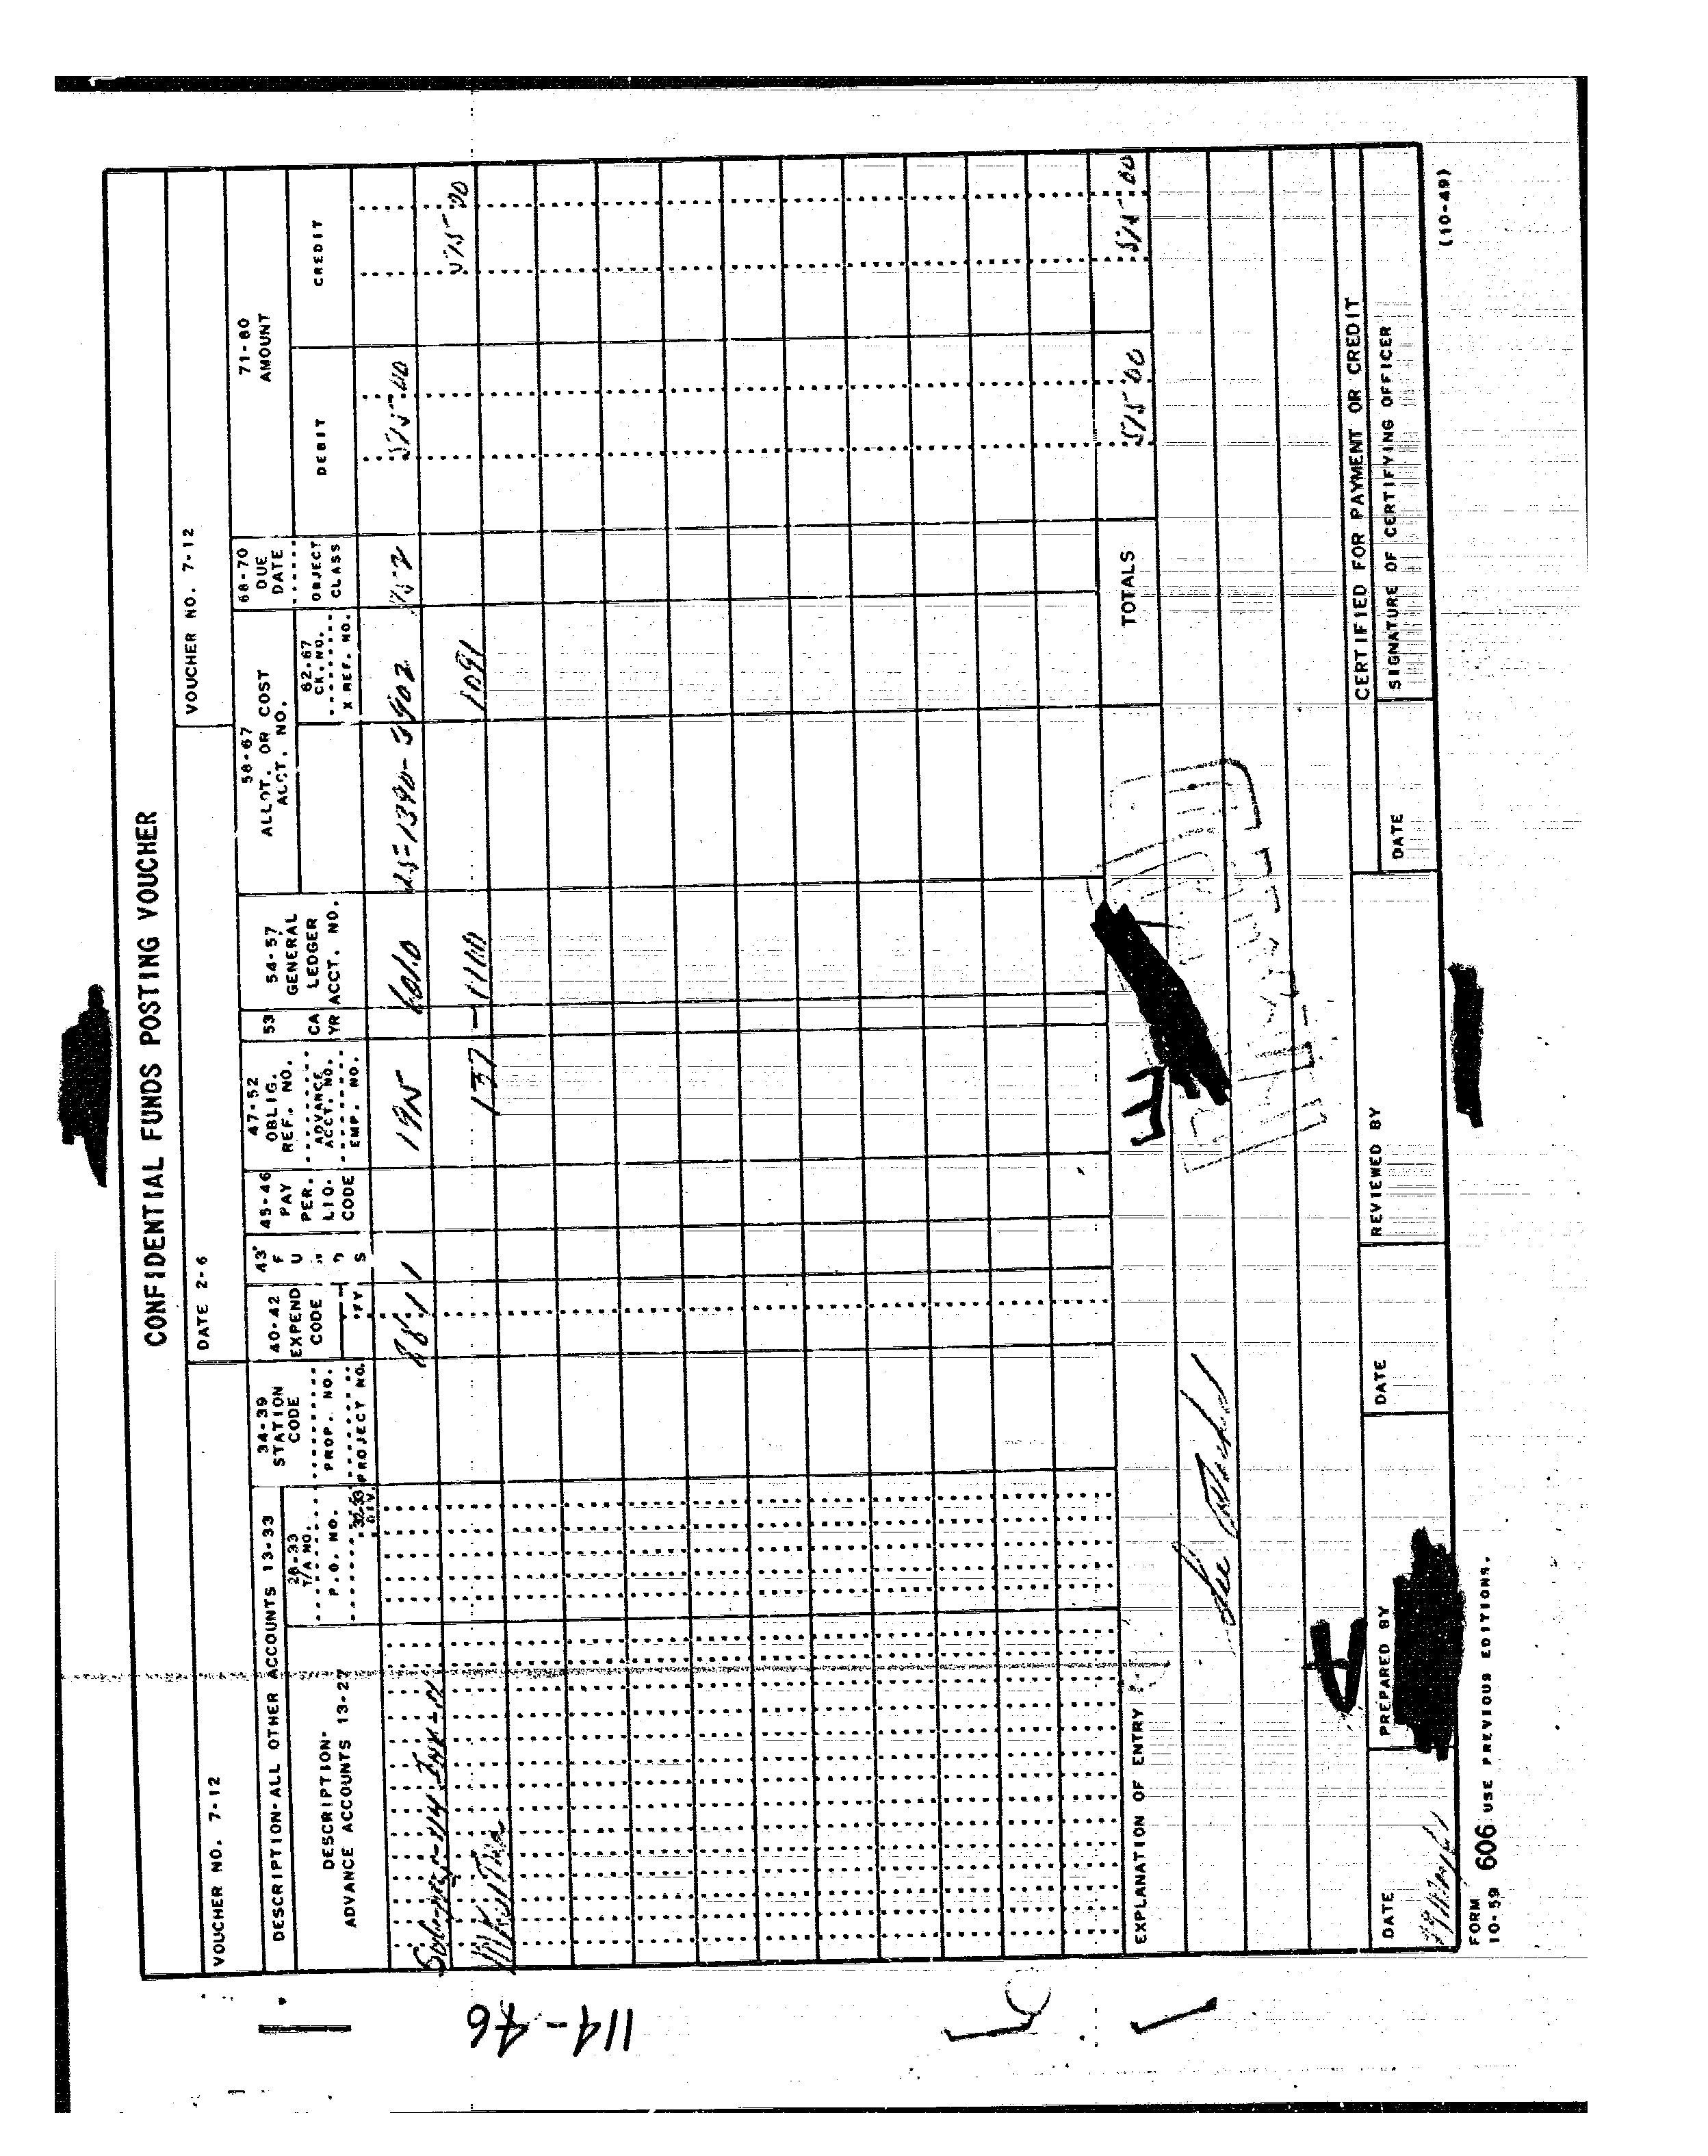 CONFIDENTIAL FUNDS POSTING VOUCHER
VOUCHER NO. 7-12
DATE 2-6
VOUCHER NO. 7-12
DESCRIPTION-ALL OTHER ACCOUNTS 13-33
DESCRIPTION-
ADVANCE ACCOUNTS 13-27
28-33
T/A NO.
P.O. NO.
32-33
DIV.
34-39
STATION
CODE
PROP. NO.
PROJECT NO.
40-42
EXPEND
CODE
FY
43
F
U
N
D
S
45-46
PAY
PER.
LIQ-
CODE
47-52
OBLIG.
REF. NO.
ADVANCE
ACCT. NO.
EMP. NO.
53
CA
YR
54-57
GENERAL
LEDGER
ACCT. NO.
58-67
ALLOT. OR COST
ACCT. NO.
62-67
CK. NO.
X REF. NO.
68-70
DUE
DATE
OBJECT
CLASS
71-80
AMOUNT
DEBIT
CREDIT
114 Inv-
195
137
1100
1091
TOTALS
EXPLANATION OF ENTRY
See
E
A
CERTIFIED FOR PAYMENT OR CREDIT
DATE
PREPARED BY
DATE
REVIEWED BY
DATE
SIGNATURE OF CERTIFYING OFFICER
FORM
10-59 606 USE PREVIOUS EDITIONS.
(10-49)
114-46